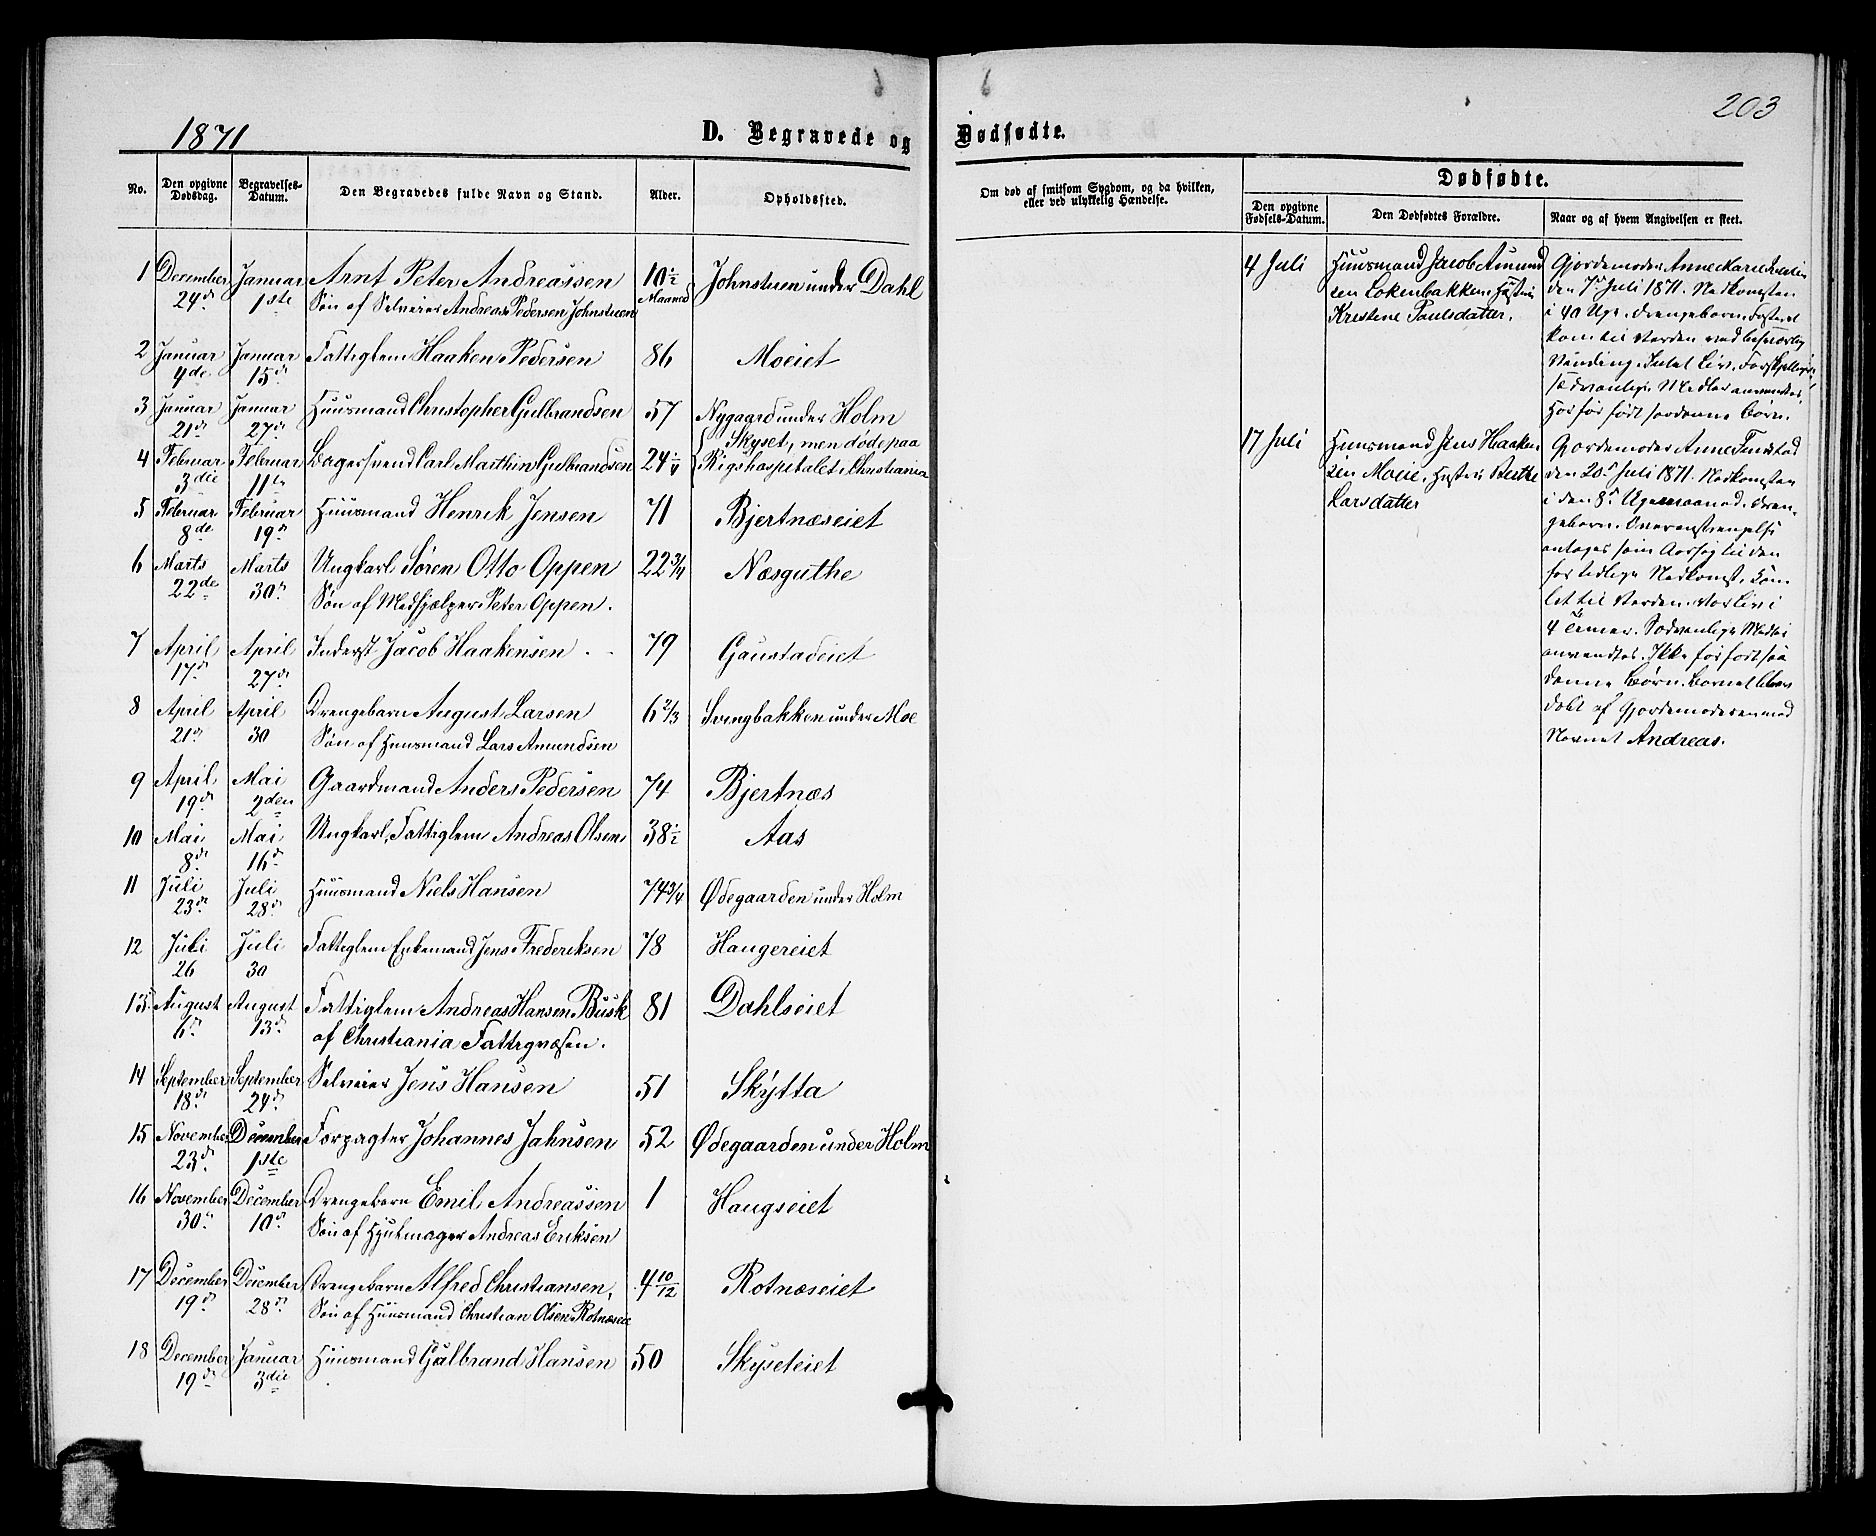 1871
D. Begravede og Dødfødte.
203
No.
Den opgivne Dødsdag.
Begravelses-Datum.
Den Begravedes fulde Navn og Stand.
Alder.
Opholdssted.
Om død af smitsom Sygdom, og da hvilken,
eller ved ulykkelig Hændelse.
Dødfødte.
Den opgivne Fødsels-Datum.
Den Dødfødtes Forældre.
Naar og af hvem Angivelsen er skeet.
1 December Januar Arnt Peter Andreassen 10½ Johnstuen under Dahl
24de 1ste Søn af Selveier Andreas Pedersen Johnstuen Maaned
2 Januar Januar Fattiglem Haaken Pedersen 86 Moeiet
4de 15de
3 Januar Januar Huusmand Christopher Gulbrandsen 57 Nygaard under Holm
21de 27de
4 Februar Februar Bagersvend Carl Marthin Gulbrandsen 24¼ Skyset, men døde paa
3die 11te Rigshospitalet i Christiania
5 Februar Februar Huusmand Henrik Jensen 71 Bjertnæseiet
8de 19de
6 Marts Marts Ungkarl Søren Otto Oppen 22¾ Næsguthe
22de 30de Søn af Medhjælper Peter Oppen.
7 April April Inderst Jacob Haakensen 79 Gaustadeiet
17de 27de
8 April April Drengebarn August Larsen 6⅔ Svingbakken under Moe
21de 30 Søn af Huusmand Lars Amundsen
9 April Mai Gaardmand Anders Pedersen 74 Bjertnæs
19de 2den
10 Mai Mai Ungkarl, Fattiglem Andreas Olsen 38½ Aas
8de 16de
11 Juli Juli Huusmand Niels Hansen 74¾ Ødegaarden under Holm
23de 28de
12 Juli Juli Fattiglem Enkemand Jens Frederiksen 78 Haugereiet
26 30
13 August August Fattiglem Andreas Hansen Busk 81 Dahlseiet
6te 13de af Christiania Fattigvæsen.
14 September September Selveier Jens Hansen 51 Skytta
18de 24de
15 November December Forpagter Johannes Jahnsen 52 Ødegaarden under Holm
23de 1ste
16 November December Drengebarn Emil Andreassen 1 Haugseiet
30de 10de Søn af Hjulmager Andreas Eriksen
17 December December Drengebarn Alfred Christiansen, 4 10/12 Rotnæseiet
19de 28de Søn af Huusmand Christian Olsen Rotnæseie
18 December Januar Huusmand Gulbrand Hansen 50 Skyseteiet
19de 3die
4 Juli
Huusmand Jacob Amund
sen Løkenbakken, Hustru
Kristine Paulsdatter.
Gjordemoder Anne Karie
den 7de Juli 1871. Nedkomsten
i 40 Uge. Drengebarn. Fosteret
kom til Verden ved besværlig
Vending. Intet Liv. Forskjellige
sædvanlige Midler anvendtes.
Har før født saadanne Børn.
17 Juli
Huusmand Jens Haaken
sen Moeie, Hustru Berthe
Larsdatter
Gjordemoder Anne Finstad
den 20de Juli 1871. Nedkomsten
i den 8de Ugemaaned. Dren-
gebarn. Overanstrengelse
antages som Aarsag til den
for tidlige Nedkomst. Kom
let til Verden. Var Liv i
4 Timer. Sædvanlige Midler
anvendtes. Ikke før født saa
danne Børn. Barnet blev
døbt af Gjordemoderen med
Navnet Andreas.